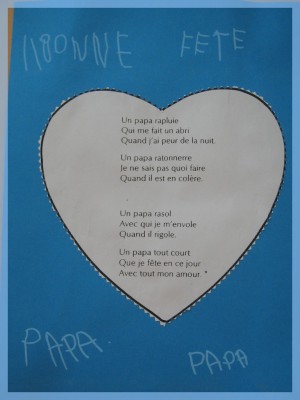 BONNE FETE
Un papa rapluie
Qui me fait un abri
Quand j'ai peur de la nuit.
Un papa ratonnerre
Je ne sais pas quoi faire
Quand il est en colère.
Un papa rasol
Avec qui je m'envole
Quand il rigole.
Un papa tout court
Que je fête en ce jour
Avec tout mon amour. *
PAPA.
PAPA